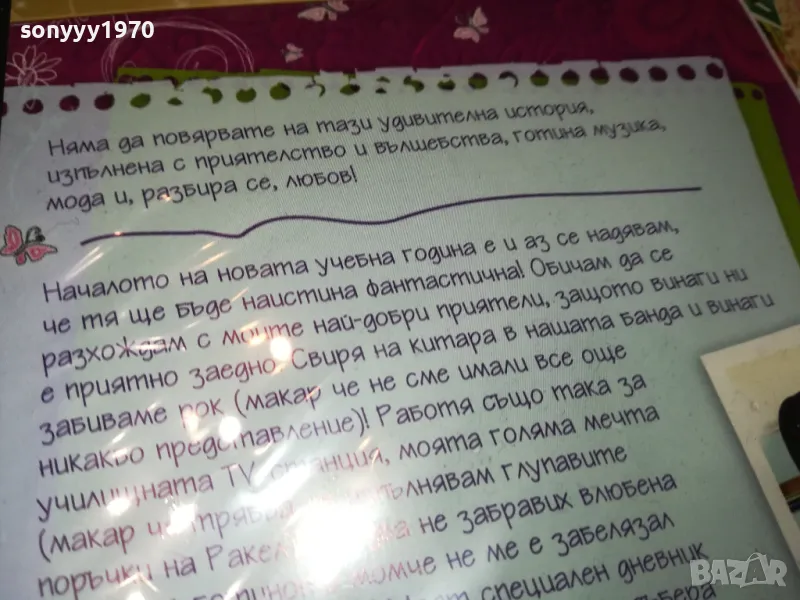 sonyyy1970
Няма да повярвате на тази удивителна история,
изпълнена с приятелство и вълшебства, готина музика,
мода и, разбира се, любов!
Началото на новата учебна година е и аз се надявам,
че тя ще бъде наистина фантастична! Обичам да се
разхождам с моите най-добри приятели, защото винаги ни
е приятно заедно. Свиря на китара в нашата банда и винаги
забиваме рок (макар че не сме имали все още
никакво представление)! Работя също така за
училищната TV станция, моята голяма мечта
(макар че трябва изпълнявам глупавите
поръчки на Ракел не забравих влюбена
момче не ме е забелязал
специален дневник
BAZAR